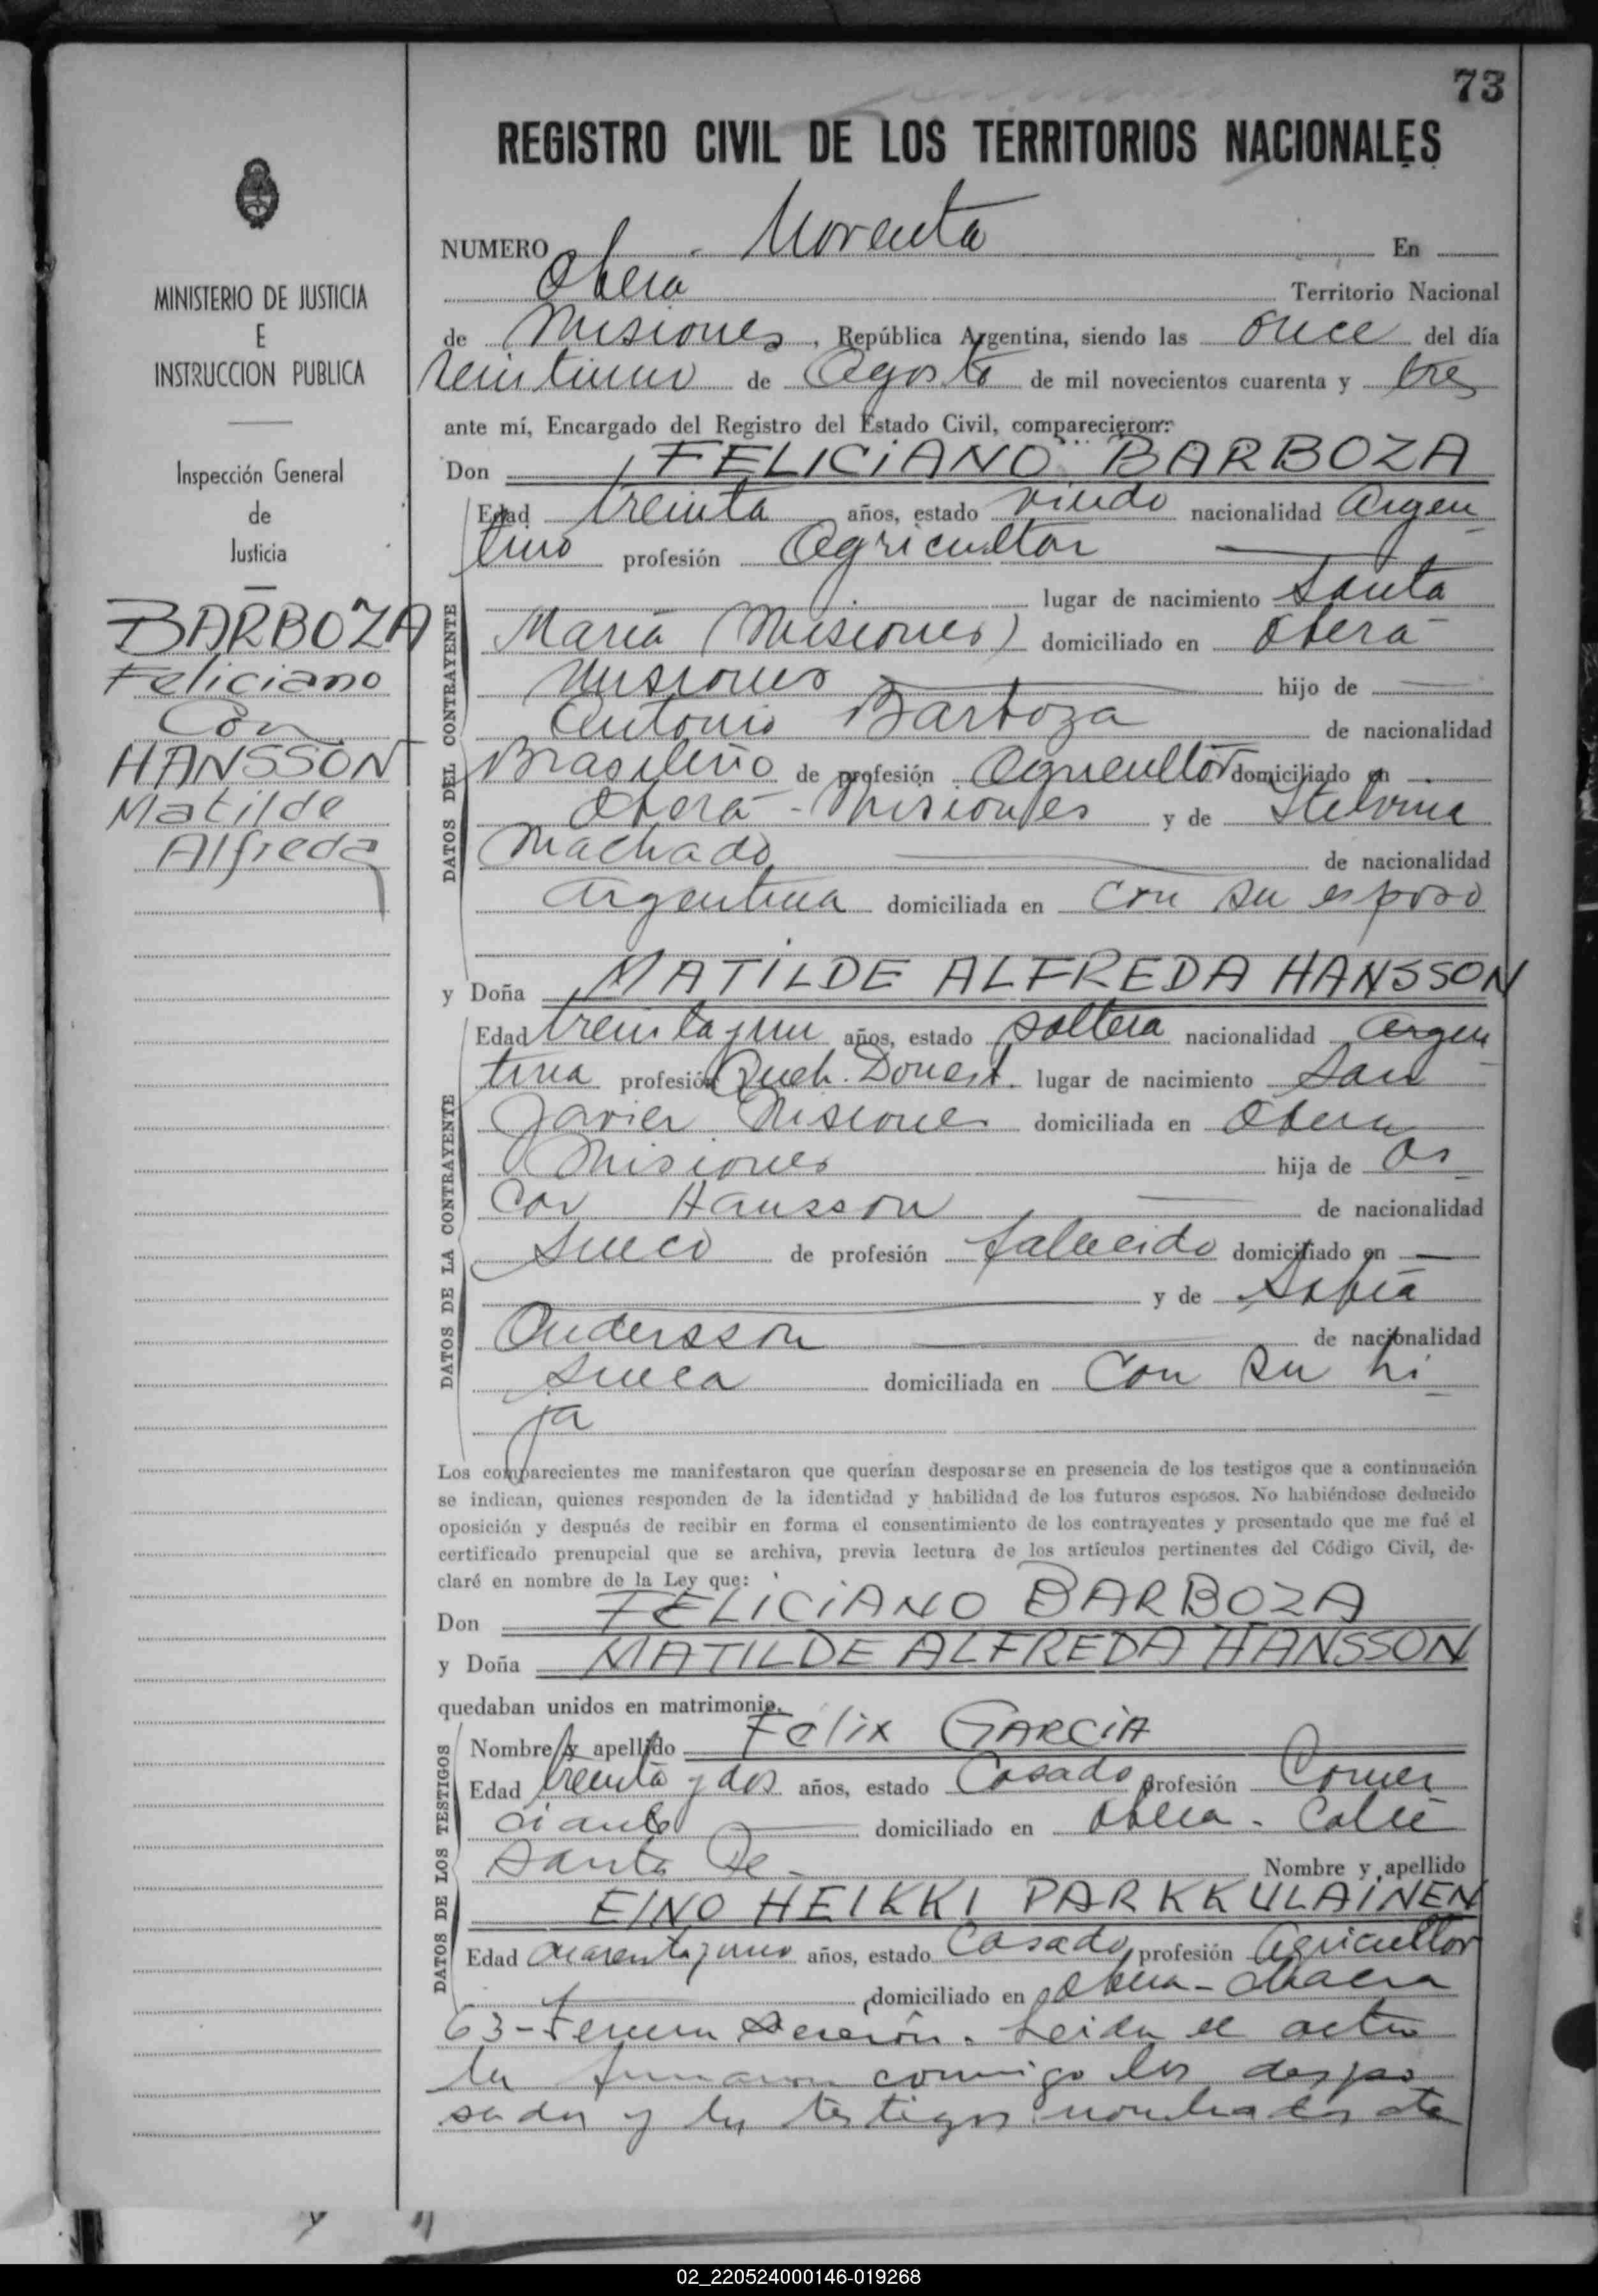 73
REGISTRO CIVIL DE LOS TERRITORIOS NACIONALES
MINISTERIO DE JUSTICIA
E
INSTRUCCION PUBLICA
Inspección General
de
Justicia
BARBOZA
Feliciano
Con
HANSSON
Matilde
Alfreda
NUMERO Noventa En
Oberá Territorio Nacional
de Misiones, República Argentina, siendo las once del día
veintiuno de Agosto de mil novecientos cuarenta y tres
ante mí, Encargado del Registro del Estado Civil, comparecieron:
Don FELICIANO BARBOZA
Edad treinta años, estado viudo nacionalidad Argen
tino profesión Agricultor
lugar de nacimiento Santa
María (Misiones) domiciliado en Oberá
Misiones hijo de
Antonio Barboza de nacionalidad
Brasileño de profesión Agricultor domiciliado en
Oberá - Misiones y de
Machado de nacionalidad
Argentina domiciliada en con su esposo
DATOS DEL CONTRAYENTE
y Doña MATILDE ALFREDA HANSSON
Edad treinta y un años, estado soltera nacionalidad Argen
tina profesión Queh. Domest. lugar de nacimiento San
Javier Misiones domiciliada en Oberá
Misiones hija de Os
car Hansson de nacionalidad
Sueco de profesión falecido domiciliado en
y de Sofía
Andersson de nacionalidad
Sueca domiciliada en con su hi
ja
DATOS DE LA CONTRAYENTE
Los comparecientes me manifestaron que querían desposarse en presencia de los testigos que a continuación
se indican, quienes responden de la identidad y habilidad de los futuros esposos. No habiéndose deducido
oposición y después de recibir en forma el consentimiento de los contrayentes y presentado que me fué el
certificado prenupcial que se archiva, previa lectura de los artículos pertinentes del Código Civil, de-
claré en nombre de la Ley que:
Don FELICIANO BARBOZA
y Doña MATILDE ALFREDA HANSSON
quedaban unidos en matrimonio.
Nombre y apellido Félix GARCIA
Edad treinta y dos años, estado Casado profesión Comer
ciante domiciliado en Oberá - Calle
Santa Fe - Nombre y apellido
EINO HEIKKI PARKKULAINEN
Edad cuarenta y uno años, estado Casado profesión Agricultor
domiciliado en Oberá - Chacra
63 - Tercera Sección. Leida el acta
la firmaron conmigo los despo
sados y los testigos nombrados
DATOS DE LOS TESTIGOS
02_220524000146-019268